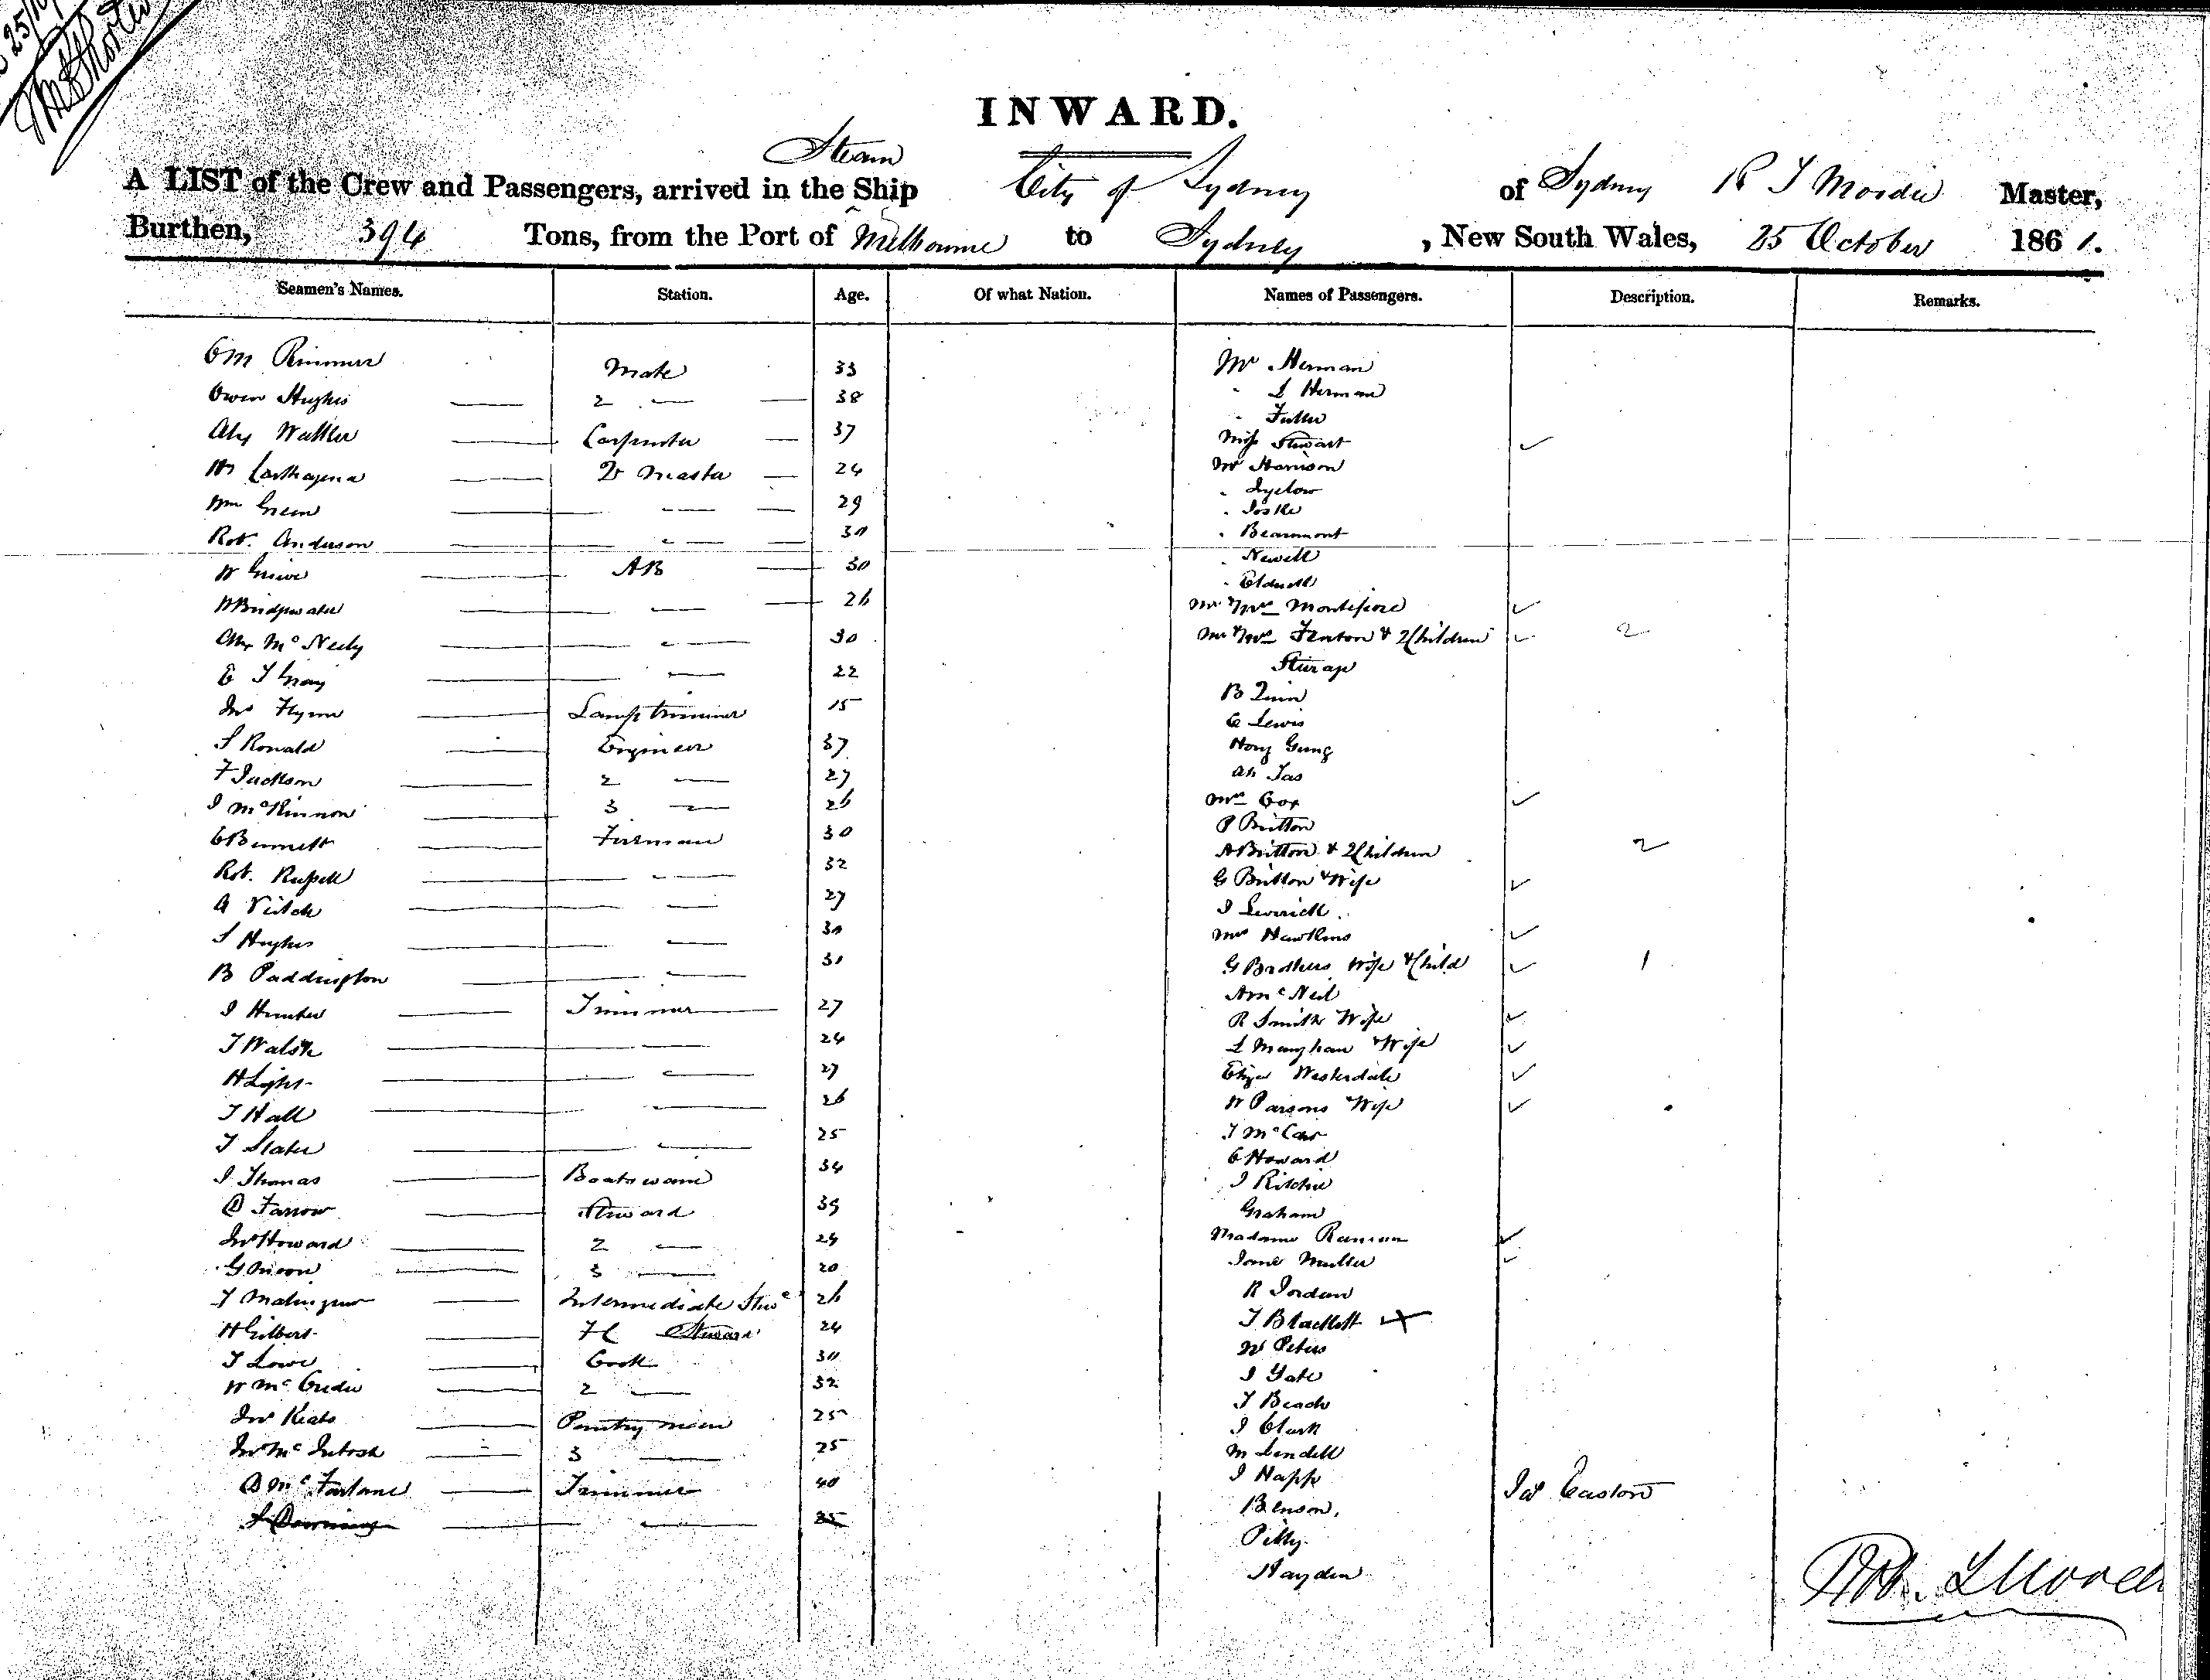 25/10
INWARD.
Steam
A LIST of the Crew and Passengers, arrived in the Ship City of Sydney of Sydney R T Moodie Master,
Burthen, 394 Tons, from the Port of Melbourne to Sydney, New South Wales, 25 October 1861.
Seamen's Names. Station. Age. Of what Nation. Names of Passengers. Description. Remarks.
C M Rimmer Mate 33
Owen Hughes 2 — 38
Alex Walker Carpenter 37
Wm Carthagena Qr Master 24
Wm Green — 29
Rob. Anderson — 30
W Grieve AB 30
W Bridgwater — 26
Alex McNeily — 30
E T Gray — 22
Jno Flynn Lamp trimmer 15
S Ronald Engineer 37
F Jackson 2 — 27
J McKinnon 3 — 26
C Bennett Fireman 30
Rob. Russell — 32
A Veitch — 27
S Hughes — 30
B Paddington — 31
J Hunter Trimmer 27
T Walsh — 24
H Light — 27
T Hall — 26
T Slater — 25
J Thomas Boatswain 34
D Farrow Steward 35
Jno Howard 2 — 24
G Nixon 3 — 20
T Intermediate Stwd 26
H Gilbert F C Steward 24
T Lowe Cook 30
W McCredie 2 — 32
Jno Keats Pantry man 25
Jno McIntosh 3 — 25
D McFarlane Trimmer 40
S Downing — 25
Mr Herman
" L Herman
" Fuller
Miss Stewart ✓
Mr Harrison
" Ingelow
" Joske
" Beaumont
" Newell
"
Mr & Mrs Montefiore ✓
Mr & Mrs Fenton & 2 Children ✓ 2
Steerage
B Quin
C Lewis
Hong Gung
Ah Tas
Mrs Cox ✓
P Britton
A Britton & 2 Children 2
G Britton & Wife ✓
J
Mrs Hawkins ✓
G Brothers Wife & Child ✓ 1
A McNeil
R Smith Wife ✓
L Maughan & Wife ✓
Eliza Westerdale ✓
W Parsons & Wife ✓
T McCaw
C Howard
J Ritchie
Graham
Madame ✓
Jome Muller ✓
R Jordan
T Blackett X
W Peters
J Yate
T Beach
J Clark
M Lendell
J Napp
Benson,
Pitty
Hayden
Jas Easton
Rob. T Moodie